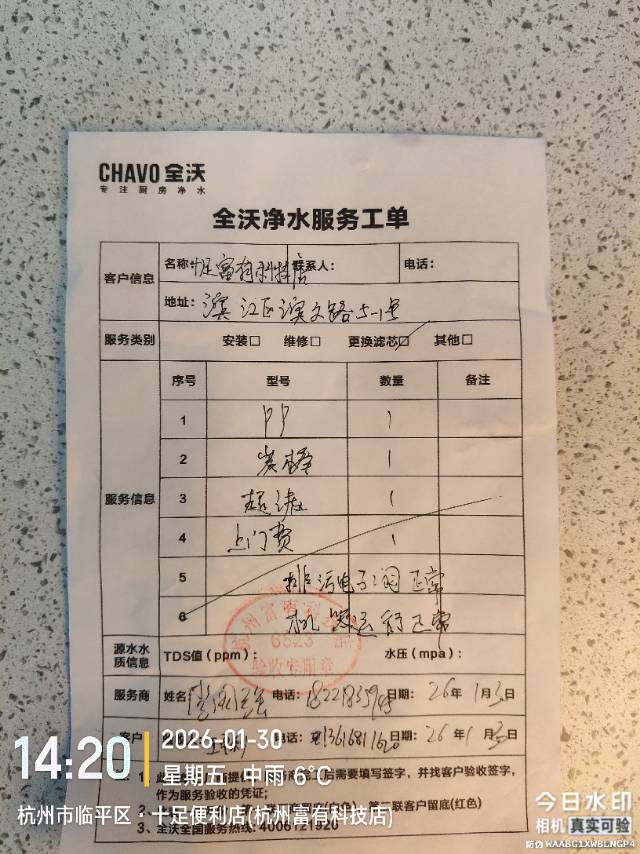 CHAVO 全沃
专注厨房净水
全沃净水服务工单
客户信息 名称: 十足富有科技店 联系人: 电话:
地址: 滨江区滨文路5-1号
服务类别 安装□ 维修□ 更换滤芯☑ 其他□
服务信息 序号 型号 数量 备注
1 PP 1
2 炭棒 1
3 超滤 1
4 上门费 1
5 排污电子阀 正常
6 机器运行正常
源水水质信息 TDS值(ppm): 水压(mpa):
杭州富有科技
6823 店
验收专用章
服务商 姓名 电话: 日期: 26年1月30日
客户 电话: 日期: 26年1月30日
14:20 2026-01-30
星期五 中雨 6℃
杭州市临平区·十足便利店(杭州富有科技店)
后需要填写签字,并找客户验收签字,
作为服务验收的凭证;
联客户留底(红色)
3、全沃全国服务热线: 4006121920
今日水印
相机 真实可验
防伪 WAABG1XWBLNGP4